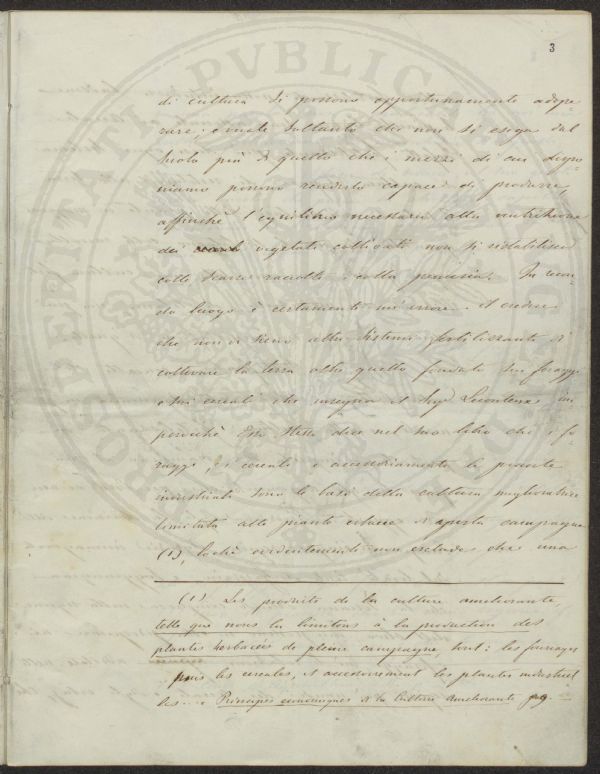 3
di cultura si possono opportunamente adope-
rare; e vuole soltanto che non si esiga dal
suolo più di quello che i mezzi di cui dispo-
niamo possono renderlo capace di produrre,
affinchè l'equilibrio necessario alla nutrizione
dei vegetali coltivati non si ristabilisca
collo scarso raccolto e colla penuria. In secon-
do luogo è certamente un'errore il credere
che non vi sieno altri sistemi fertilizzanti di
coltivare la terra oltre quello fondato sui foraggi
e sui cereali che insegna il Sigr Lecouteux im-
perocchè Esso stesso dice nel suo libro che i fo-
raggi, i cereali e accessoriamente le piante
industriali sono la base della cultura miglioratrice
limitata alle piante erbacee d'aperta campagna
(1), lochè evidentemente non esclude che una
(1) Les produits de la culture améliorante,
telle que nous la limitons à la production des
plantes herbacées de pleine campagne, sont: les fourrages
puis les cereales, et accessoirement les plantes industriel
les... Principes économiques de la Culture améliorante pag.